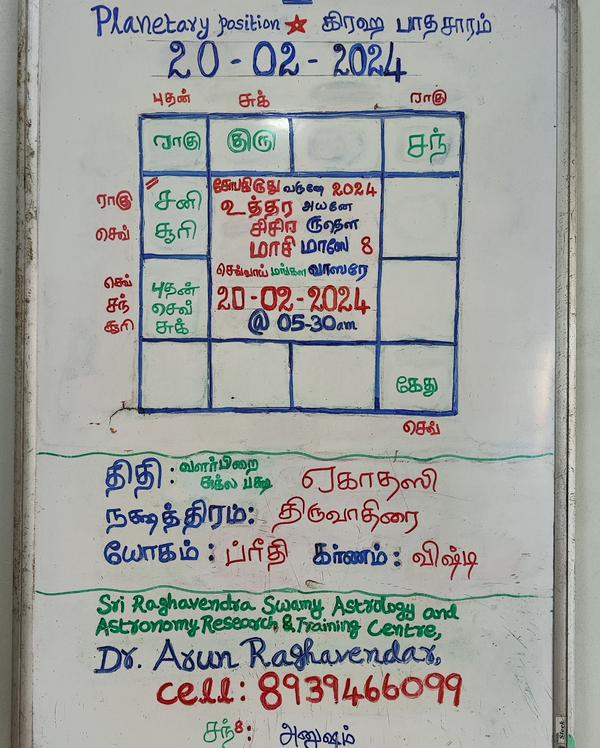 Planetary position ★ கிரஹ பாதசாரம்
20-02-2024
புதன் சுக் ராகு
ராகு குரு சந்
ராகு
செவ்
சனி
சூரி
சோபகிருது வருஷே 2024
உத்தர அயனே
சிசிர ருதௌ
மாசி மாஸே 8
செவ்வாய் மங்கள வாஸரே
20-02-2024
@ 05-30am
செவ்
சந்
சூரி
புதன்
செவ்
சுக்
கேது
செவ்
திதி : வளர்பிறை சுக்ல பக்ஷ ஏகாதஸி
நக்ஷத்திரம்: திருவாதிரை
யோகம் : ப்ரீதி கர்ணம் : விஷ்டி
Sri Raghavendra Swamy Astrology and
Astronomy Research & Training Centre,
Dr. Arun Raghavendar,
Cell: 8939466099
சந்8: அனுஷம்